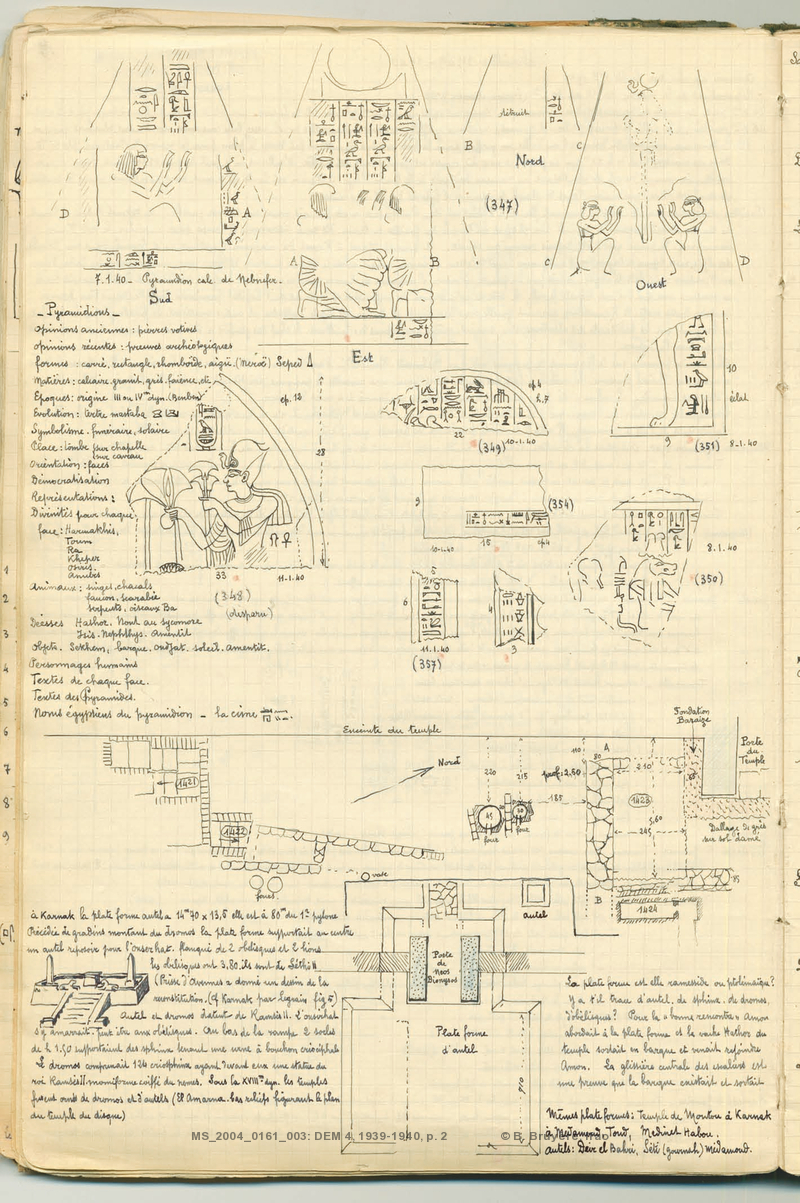 D
A
7.1.40 _ Pyramidion calc. de Nebnefer.
Sud
A
B
Est
détruit
B
C
Nord
(347)
C
D
Ouest
_ Pyramidions _
Opinions anciennes : pierres votives
opinions récentes : preuves archéologiques
formes : carré, rectangle, rhomboïde, aigü. (Meroë) Seped
Matières : calcaire, granit, grès. faïence, etc
Epoques : origine III ou IVme dyn. (Benben)
Evolution : tertre mastaba
Symbolisme. funéraire, solaire
Place : tombe sur chapelle
sur caveau
Orientation : faces
Démocratisation
Représentations :
Divinités pour chaque
face : Harmakhis,
Toum
Ra
Kheper
Osiris.
Anubis
Animaux : singes, chacals
faucon, scarabée
serpents, oiseaux Ba
Déesses Hathor. Nout au sycomore
Isis. Nephthys. Amentit
Objets. Sekhem, barque. oudjat. soleil. Amentit.
Personnages humains
Textes de chaque face.
Textes des Pyramides.
Noms égyptiens du pyramidion _ la cime
ep. 12
28
33
11.1.40
(348)
(disparu)
ep 4
h. 7
22
(349)
10-1.40
10
éclat
9
(351)
8-1.40
9
(354)
10-1.40
15
ep 4
8.1.40
(350)
6
5
11.1.40
(357)
4
3
1
2
3
4
5
6
7
8
9
Enceinte du temple
Fondation
Baraize
Porte
du
Temple
Nord
1421
1422
fours
vase
220
215
four
four
185
prof : 2.60
110
80
A
210
1423
5,60
245
B
1424
Dallage de grès
sur sol dame
à Karnak la plate forme autel a 14m70 x 13,5 elle est à 80m du 1er pylone
Précédée de gradins montant du dromos la plate forme supportait au centre
un autel reposoir pour l'Onserhat. flanqué de 2 obélisques et 2 lions
les obélisques ont 3,80. ils sont de Séthi II
(Prisse d'Avennes a donné un dessin de la
reconstitution. (cf Karnak par Legrain fig 5)
Autel et dromos datent de Ramsès II. L'onserhat
s'y amarrait peut être aux obélisques. Au bas de la rampe 2 socles
de h 1.50 supportaient des sphinx tenant une urne à bouchon criocéphale
Le dromos comprenait 124 criosphinx ayant devant eux une statue du
roi Ramsès II momiforme coiffé du nemes. Sous la XVIIIme dyn. les temples
furent ornés de dromos et d'autels (El Amarna. bas reliefs figurant le plan
du temple du disque)
autel
Porte
de
Neos
Dionysos
Plate forme
d'autel
La plate forme est elle ramesside ou ptolémaïque ?
Y a t'il trace d'autel, de sphinx. de dromos,
d'obélisques ? Pour la "bonne rencontre" Amon
abordait à la plate forme et la vache Hathor du
temple sortait en barque et venait rejoindre
Amon. La glissière centrale des escaliers est
une preuve que la barque existait et sortait
Mêmes plate formes : Temple de Montou à Karnak
à Médamoud, Tôd, Medinet Habou.
autels : Deir el Bahri, Séti (gournah) Médamoud.
MS_2004_0161_003: DEM 4, 1939-1940, p. 2